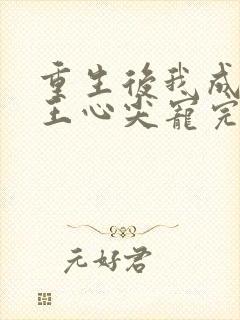 重生後我成
王心尖寵完
元好君